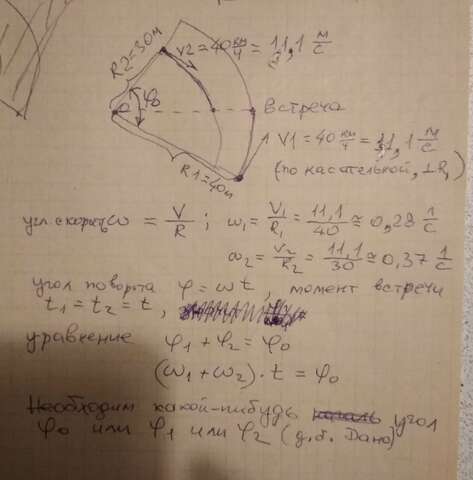 R2=30м
V2 = 40 км/ч = 11,1 м/с
φ₀
встреча
V1 = 40 км/ч = 11,1 м/с
(по касательной, ⊥R₁)
R1=40м
угл. скорость ω = V/R ; ω₁ = V₁/R₁ = 11,1/40 ≅ 0,28 1/с
ω₂ = V₂/R₂ = 11,1/30 ≅ 0,37 1/с
угол поворота φ = ωt , момент встречи
t₁ = t₂ = t ,
уравнение φ₁ + φ₂ = φ₀
(ω₁ + ω₂) · t = φ₀
Необходим какой-нибудь угол
φ₀ или φ₁ или φ₂ (д.б. Дано)